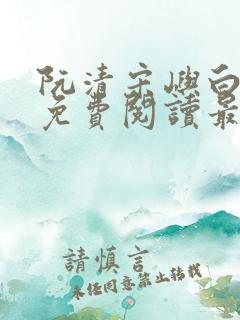 阮清宋嶼白
免費閱讀最
請慎言
未经同意禁止转载